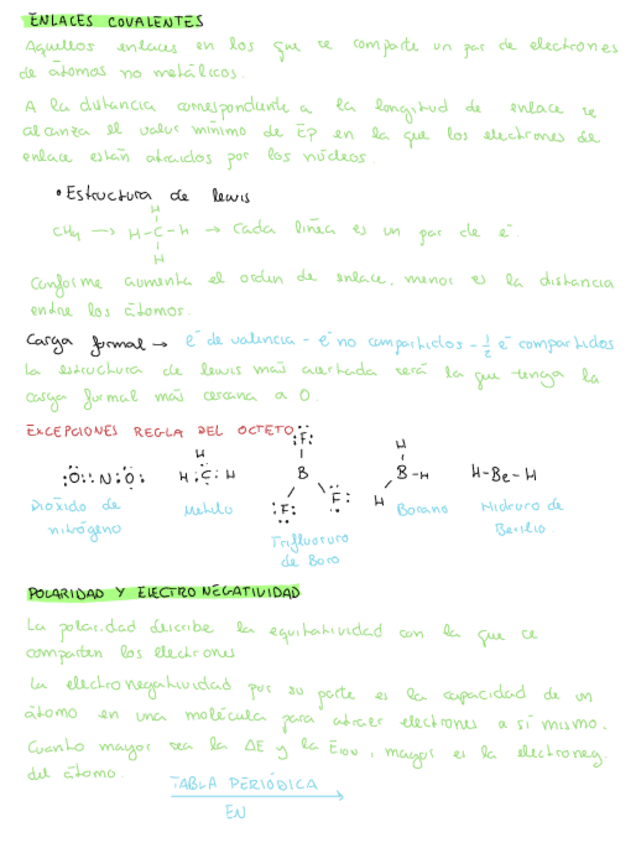 ENLACES COVALENTES
Aquellos enlaces en los que se comparte un par de electrones
de átomos no metálicos.
A la distancia correspondiente a la longitud de enlace se
alcanza el valor mínimo de Ep en la que los electrones de
enlace están atraídos por los núcleos.
• Estructura de lewis
H
CH4 → H-C-H → Cada línea es un par de e⁻.
H
Conforme aumenta el orden de enlace, menor es la distancia
entre los átomos.
Carga formal → e⁻ de valencia - e⁻ no compartidos - 1/2 e⁻ compartidos
La estructura de lewis más acertada será la que tenga la
carga formal más cercana a 0.
EXCEPCIONES REGLA DEL OCTETO
:Ö::N:Ö:
H
H:C:H
:F:
B
:F: F:
H
B-H
H
H-Be-H
Dióxido de
nitrógeno
Metilo
Trifluoruro
de Boro
Borano
Hidruro de
Berilio.
POLARIDAD Y ELECTRONEGATIVIDAD
La polaridad describe la equitatividad con la que se
comparten los electrones
La electronegatividad por su parte es la capacidad de un
átomo en una molécula para atraer electrones a sí mismo.
Cuanto mayor sea la ΔE y la EION, mayor es la electroneg.
del átomo.
TABLA PERIÓDICA
EN